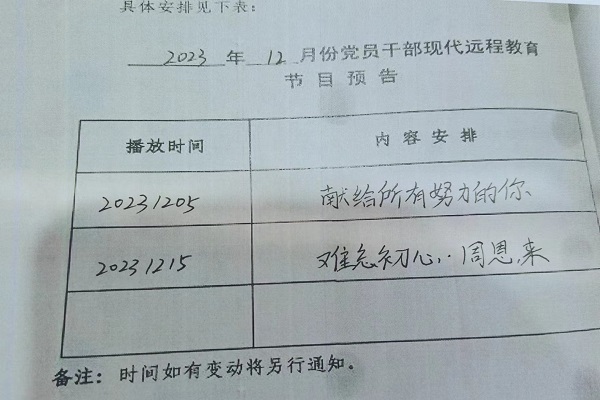 具体安排见下表:
2023 年 12 月份党员干部现代远程教育
节目预告
播放时间 内容安排
20231205 献给所有努力的你
20231215 难忘初心:周恩来
备注:时间如有变动将另行通知。